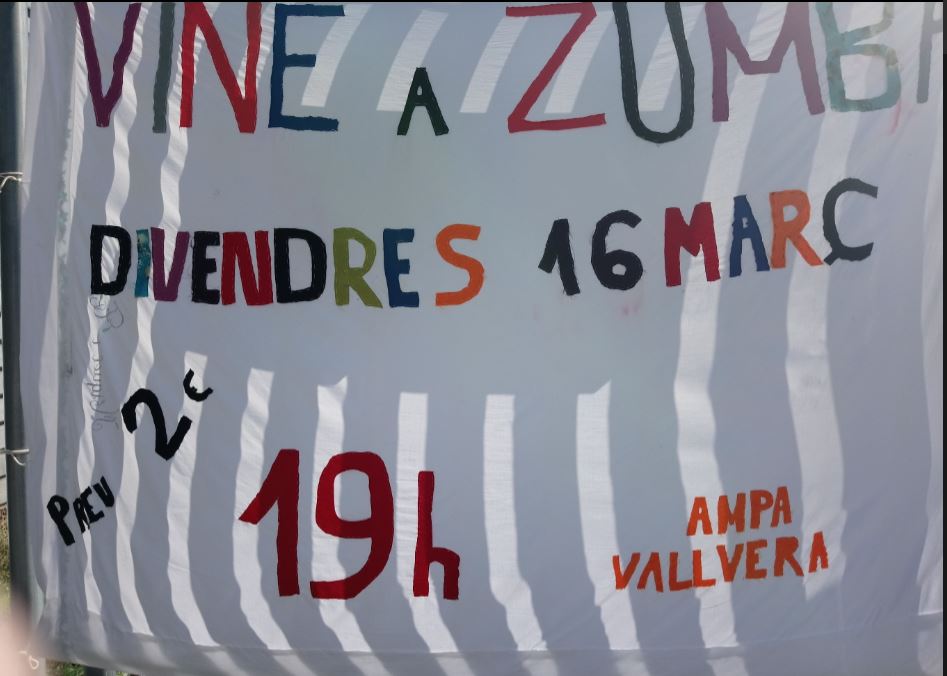 VINE A ZUMBA
DIVENDRES 16 MARÇ
PREU 2€
19h
AMPA
VALLVERA